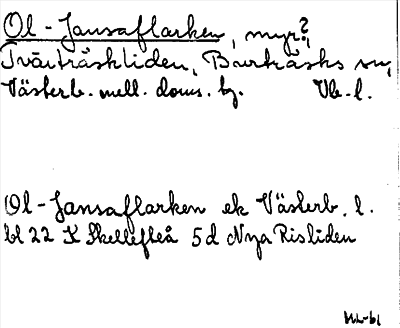 Ol-Jansaflarken, myr?,
Tvärträskliden, Burträsks sn,
Västerb. mell. doms. tg. Vb. l.
Ol-Jansaflarken ek Västerb. l.
bl 22 K Skellefteå 5d Nya Risliden